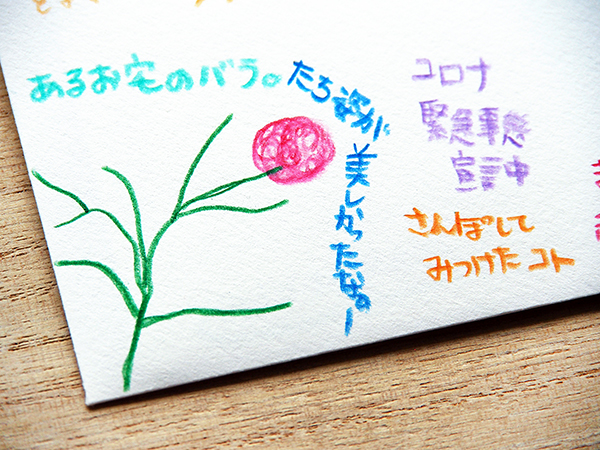 あるお宅のバラ。
たち姿が美しかったなぁー
コロナ
緊急事態
宣言中
さんぽして
みつけたコト